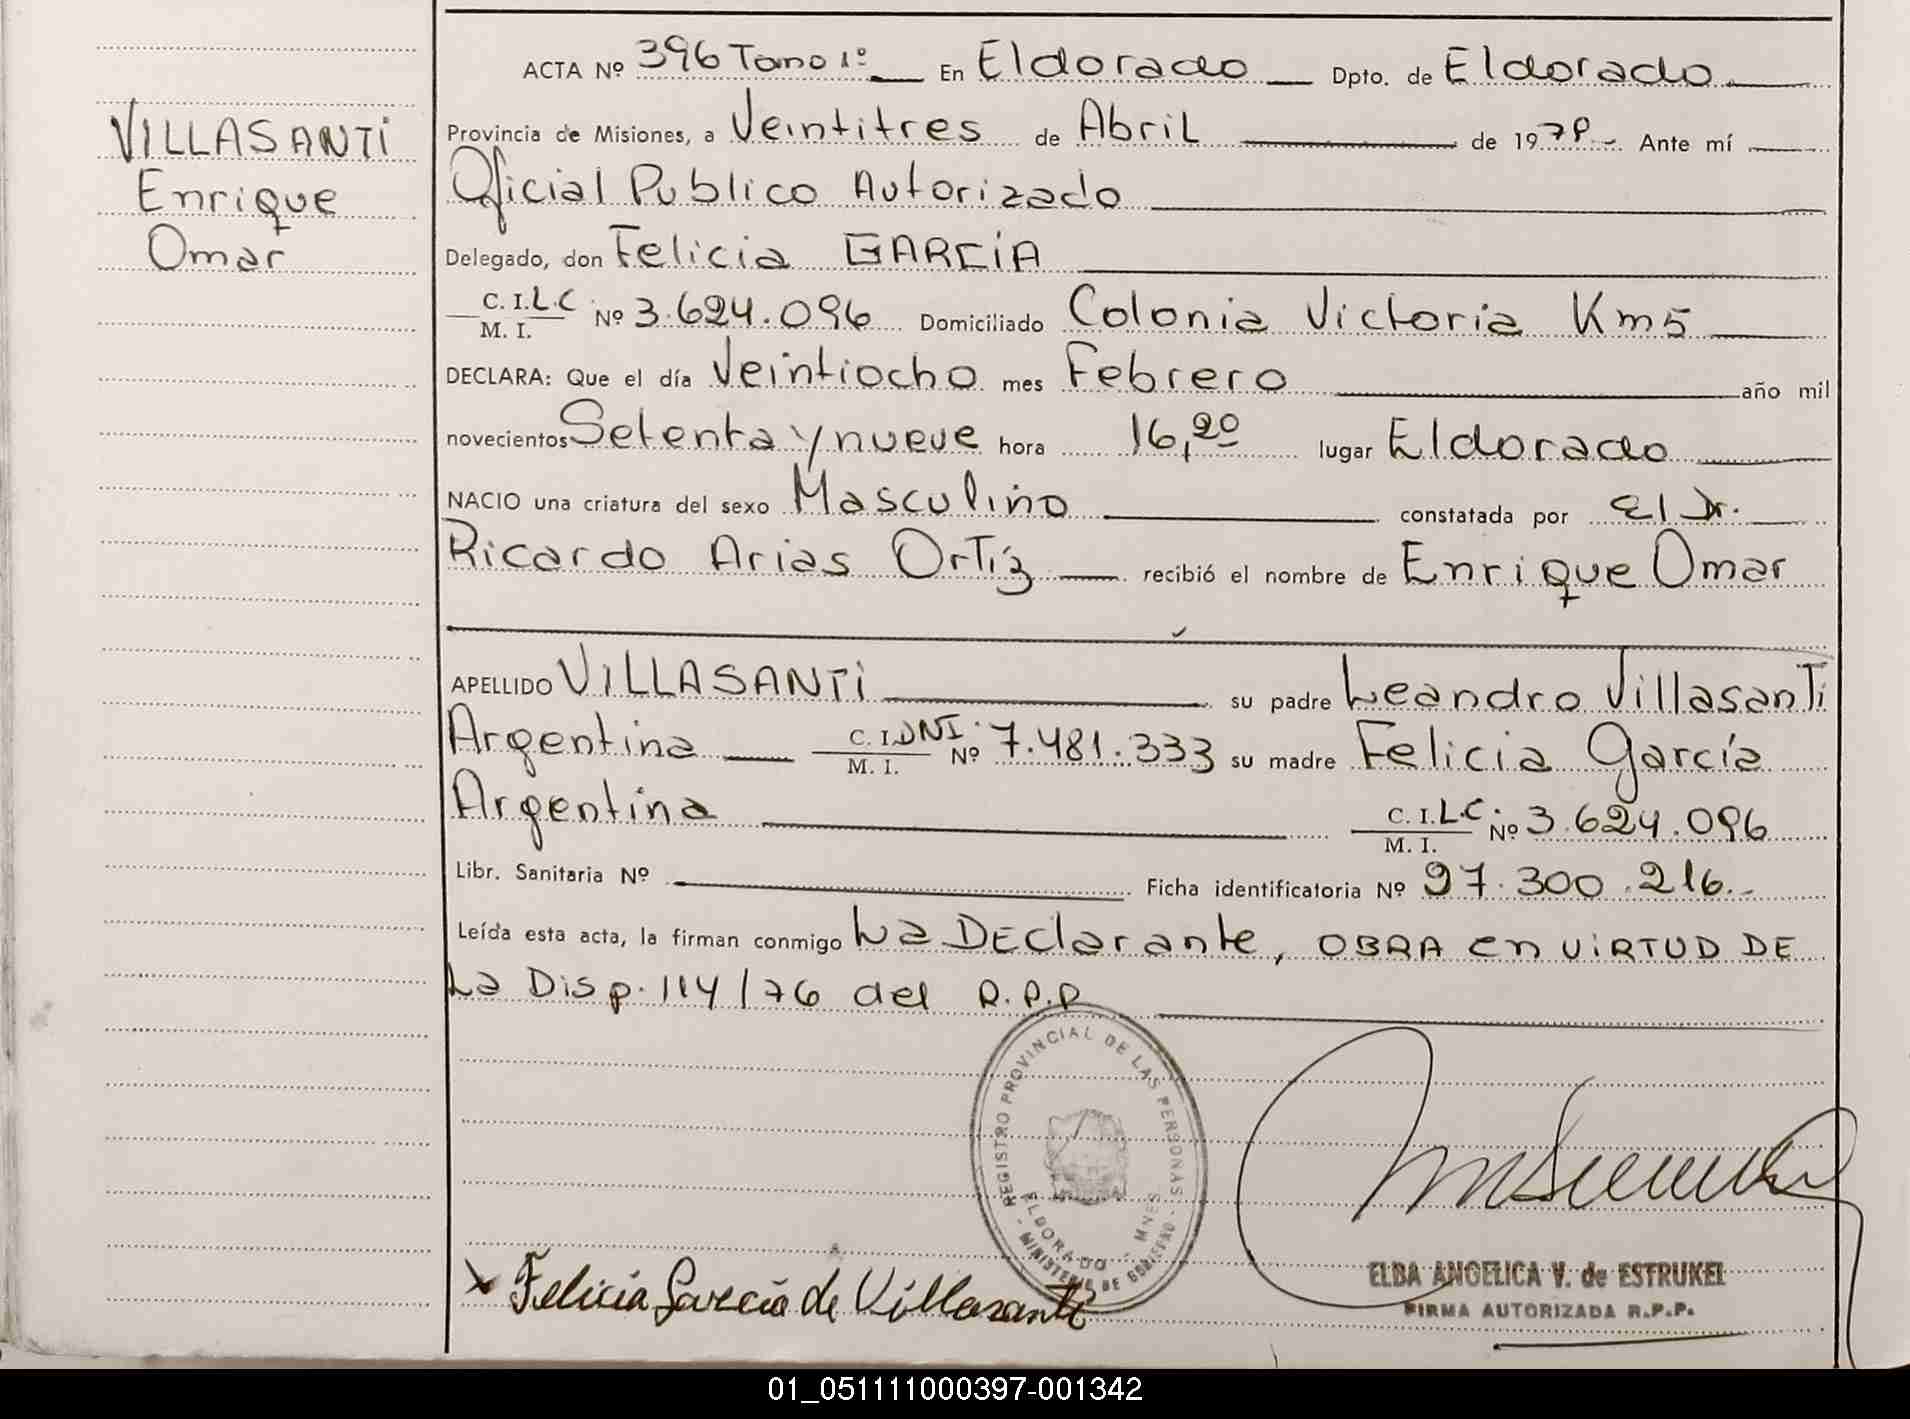 VILLASANTI
Enrique
Omar
ACTA Nº 396 Tomo 1º En Eldorado Dpto. de Eldorado
Provincia de Misiones, a Veintitres de Abril de 1979 Ante mí
Oficial Publico Autorizado
Delegado, don Felicia GARCÍA
C. I. L.C Nº 3.624.096 Domiciliado Colonia Victoria Km5
M. I.
DECLARA: Que el día Veintiocho mes Febrero año mil
novecientos Setenta y nueve hora 16,20 lugar Eldorado
NACIO una criatura del sexo Masculino constatada por El Dr.
Ricardo Arias Ortíz recibió el nombre de Enrique Omar
APELLIDO VILLASANTI su padre Leandro Villasanti
Argentina C. I. DNI. Nº 7.481.333 su madre Felicia García
M. I.
Argentina C. I. L.C. Nº 3.624.096
M. I.
Libr. Sanitaria Nº Ficha identificatoria Nº 27.300.216.-
Leída esta acta, la firman conmigo La DEClarante, OBRA en VIRTUD DE
La Disp. 114/76 del R.P.P
REGISTRO PROVINCIAL DE LAS PERSONAS
ELDORADO - MNES
MINISTERIO DE GOBIERNO
x Felicia Garcia de Villasanti
ELBA ANGELICA V. de ESTRUKEL
FIRMA AUTORIZADA R.P.P.
01_051111000397-001342